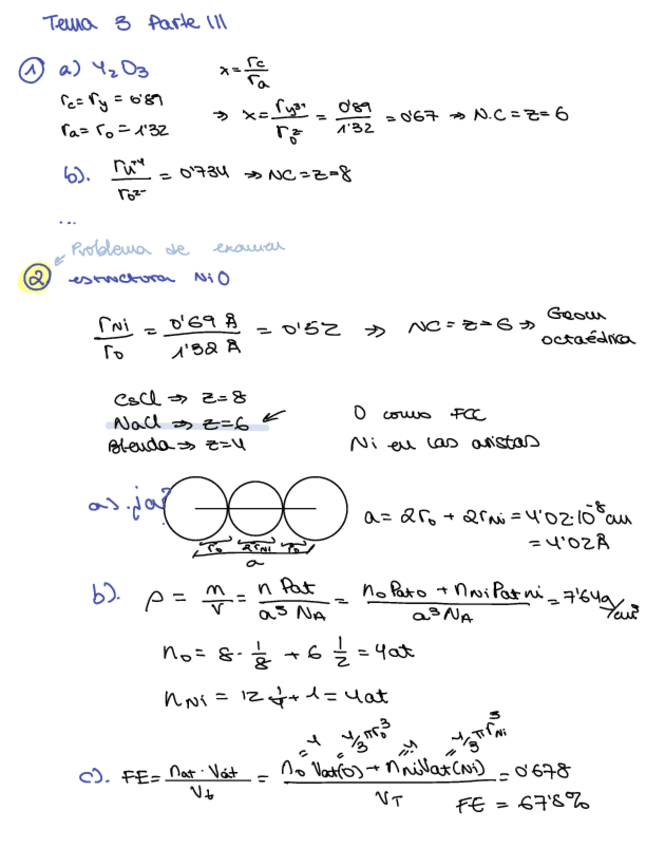 Tema 3 Parte III
① a) Y₂O₃ x = rc/ra
rc = ry = 0'89
ra = ro = 1'32
⇒ x = rY³⁺/rO²⁻ = 0'89/1'32 = 0'67 ⇒ N.C = Z = 6
b). rU⁺⁴/rO²⁻ = 0'734 ⇒ NC = Z = 8
...
Problema de examen
② estructura NiO
rNi/rO = 0'69 Å/1'32 Å = 0'52 ⇒ NC = Z = 6 ⇒ Geom octaédrica
CsCl ⇒ Z = 8
NaCl ⇒ Z = 6
Blenda ⇒ Z = 4
O como FCC
Ni en las aristas
a). ¿a?
ro 2rNi ro
a
a = 2ro + 2rNi = 4'02·10⁻⁸ cm
= 4'02 Å
b). ρ = m/V = n Pat/a³ NA = nO PatO + nNi Pat Ni/a³ NA = 7'64 g/cm³
nO = 8·1/8 + 6 1/2 = 4at
nNi = 12 1/4 + 1 = 4at
=4 4/3 πro³ =4 4/3 πrNi³
c). FE = nat · Vat/Vt = nO Vat(O) + nNi Vat(Ni)/VT = 0'678
FE = 67'8%